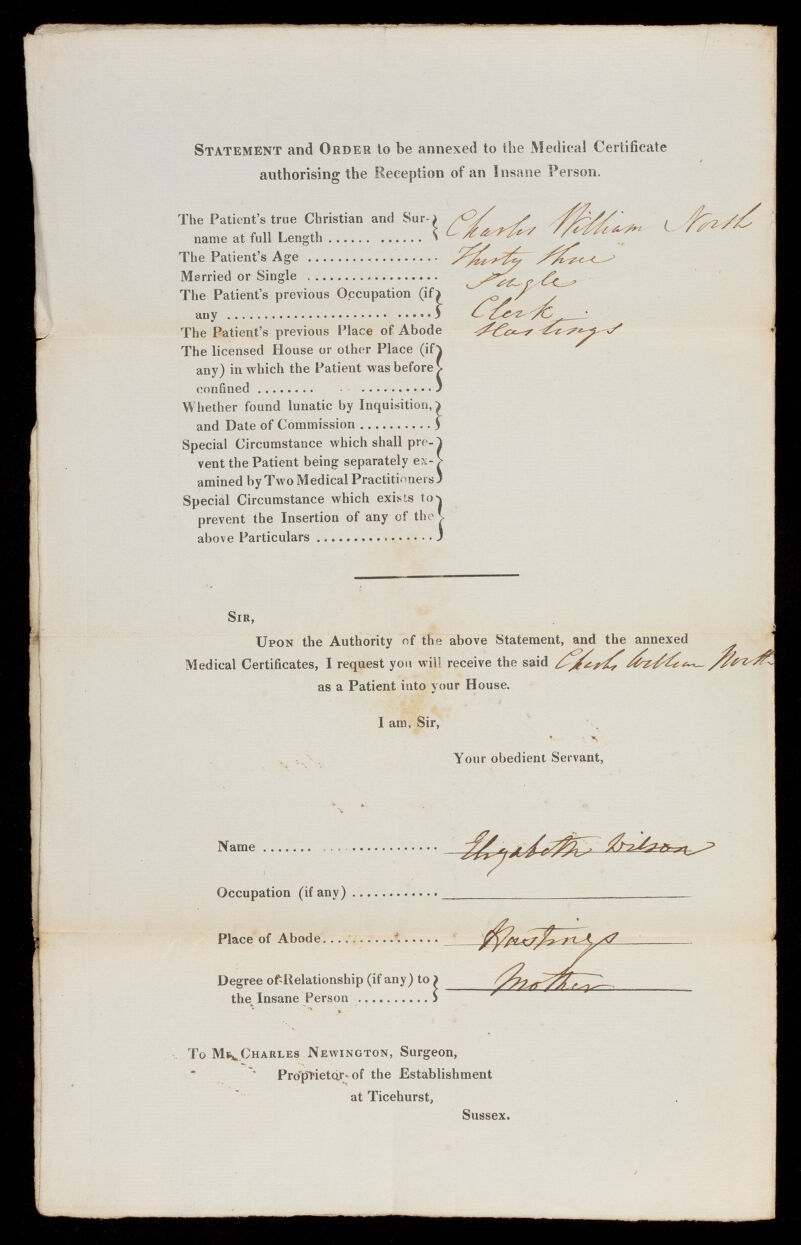 STATEMENT and ORDER to be annexed to the Medical Certificate
authorising the Reception of an Insane Person.
The Patient's true Christian and Sur-
name at full Length ............ Charles William North
The Patient's Age .................. Thirty three
Married or Single .................. Single
The Patient's previous Occupation (if
any ........................... Clerk
The Patient's previous Place of Abode Hastings
The licensed House or other Place (if
any) in which the Patient was before
confined ........ ..........
Whether found lunatic by Inquisition,
and Date of Commission ..........
Special Circumstance which shall pre-
vent the Patient being separately ex-
amined by Two Medical Practitioners
Special Circumstance which exists to
prevent the Insertion of any of the
above Particulars ................
SIR,
UPON the Authority of the above Statement, and the annexed
Medical Certificates, I request you will receive the said Charles William North
as a Patient into your House.
I am, Sir,
Your obedient Servant,
Name ....... ................ Elizabeth Wilson
Occupation (if any) ............
Place of Abode................. Hastings
Degree of Relationship (if any) to
the Insane Person .......... Mother
To MR. CHARLES NEWINGTON, Surgeon,
Proprietor of the Establishment
at Ticehurst,
Sussex.